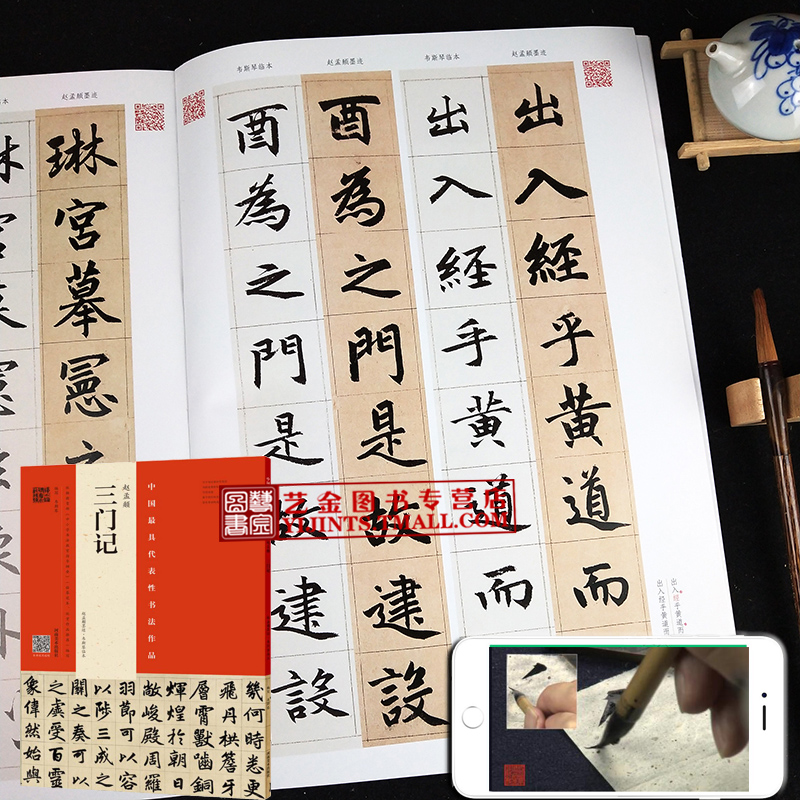 赵孟頫墨迹
韦斯琴临本
赵孟頫墨迹
韦斯琴临本
赵孟頫墨迹
出入經乎黄道而
出入經乎黄道而
酉為之門是故建設
酉為之門是故建設
琳宮摹憲之
出入经乎黄道而
艺金图书专营店
YJINTS.TMALL.COM
中国最具代表性书法作品
赵孟頫
三门记
幾何時悉更
飛丹栱簷牙
層霄獸嚙銅
輝煌於朝日
敞峻殿周羅
羽節可以容
以陟三成之
關之奏可以
之虞受百靈
象偉然始與